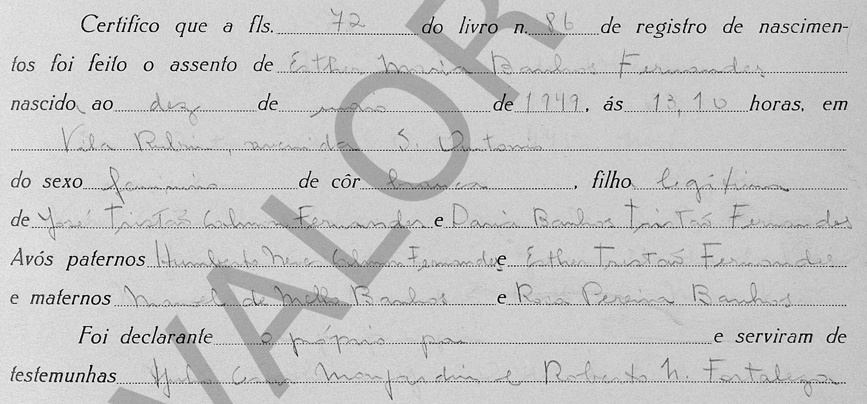 Certifico que a fls. 72 do livro n. 86 de registro de nascimen-
tos foi feito o assento de Esther Maria Banhos Fernandes
nascida ao dez de maio de 1949, ás 13,10 horas, em
Vila Rubim, avenida S. Antonio
do sexo feminino de côr branca, filha legítima
de José Tristaõ Fernandes e Banhos Tristaõ Fernandes
Avós paternos Humberto Fernandes e Esther Tristaõ Fernandes
e maternos Manoel de Mello Banhos e Rosa Pereira Banhos
Foi declarante o próprio pai e serviram de
testemunhas e Roberto N. Fortaleza
VALOR